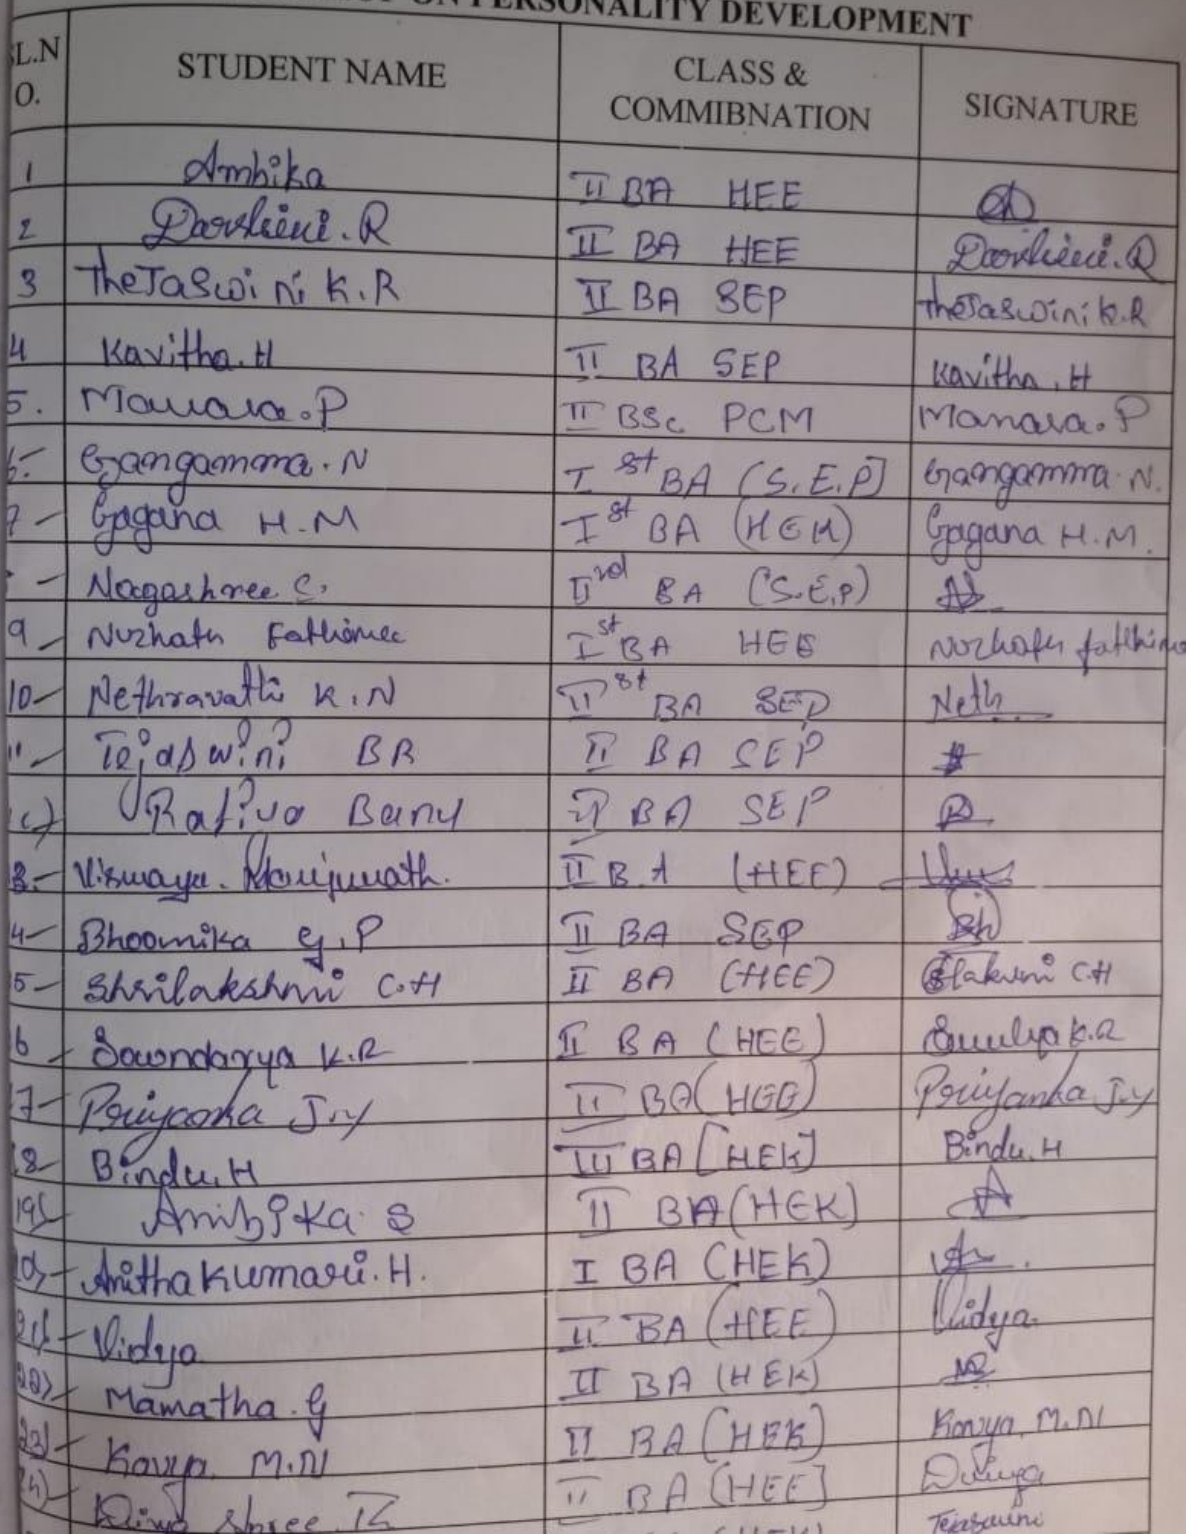 ON PERSONALITY DEVELOPMENT
SL.N O. STUDENT NAME CLASS & COMMIBNATION SIGNATURE
1 Ambika II BA HEE
2 Darshini.R II BA HEE Darshini.R
3 TheJaSwini K.R II BA SEP theJaswini K.R
4 Kavitha.H II BA SEP Kavitha.H
5. Manasa.P II BSc PCM Manasa.P
6- Gangamma.N I st BA (S.E.P] Gangamma.N.
7- Gagana H.M I st BA (HEK) Gagana H.M.
- Nagashree C. II rd BA (S.E.P)
9- Nuzhath Fathima I st BA HEE Nuzhath fathima
10- Nethravathi K.N II st BA SEP Neth
11- Tejaswini BR II BA SEP
Rafiya Banu II BA SEP R
3- Vismaya. Manjunath. II B.A (HEE)
4- Bhoomika G.P II BA SEP Bh
5- Shrilakshmi C.H II BA (HEE) C.H
6- Sowndarya K.R II BA (HEE) K.R
17- Priyanka J.Y II BA (HEE) Priyanka J.Y
18- Bindu.H III BA [HEK] Bindu.H
19) Ambika S II BA (HEK) A
20)- Anithakumari.H. I BA (HEK)
21)- Vidya II BA (HEE) Vidya
22) Mamatha.G II BA (HEK)
23)- Kavya M.N II BA (HEK) Kavya M.N
24)- shree II BA (HEE]
Tejaswini